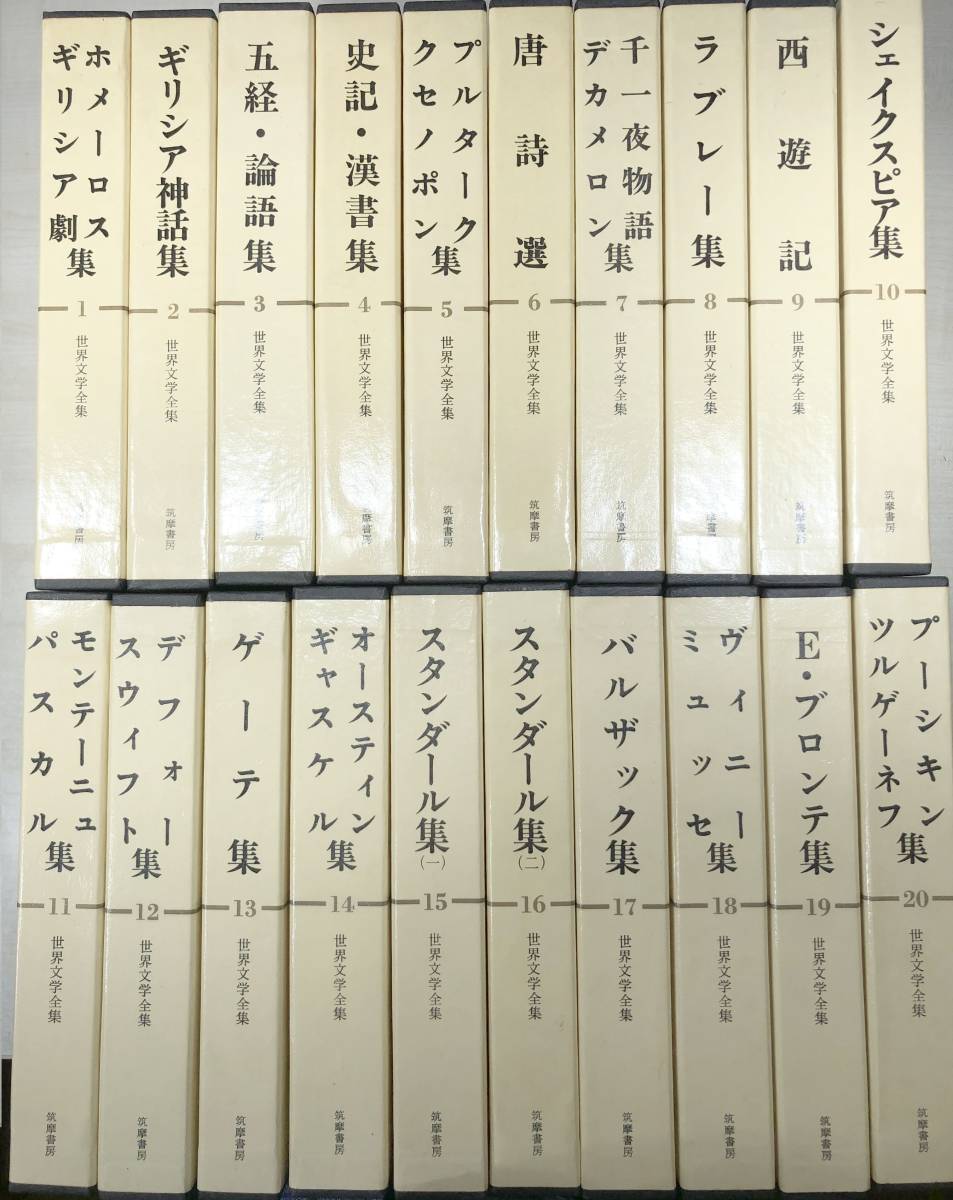 ホメーロス
ギリシア劇
集
1
世界文学全集
筑摩書房
ギリシア神話集
2
世界文学全集
筑摩書房
五経・論語集
3
世界文学全集
筑摩書房
史記・漢書集
4
世界文学全集
筑摩書房
プルターク
クセノポン
集
5
世界文学全集
筑摩書房
唐詩選
6
世界文学全集
筑摩書房
千一夜物語
デカメロン
集
7
世界文学全集
筑摩書房
ラブレー集
8
世界文学全集
筑摩書房
西遊記
9
世界文学全集
筑摩書房
シェイクスピア集
10
世界文学全集
筑摩書房
モンテーニュ
パスカル
集
11
世界文学全集
筑摩書房
デフォー
スウィフト
集
12
世界文学全集
筑摩書房
ゲーテ集
13
世界文学全集
筑摩書房
オースティン
ギャスケル
集
14
世界文学全集
筑摩書房
スタンダール集
(一)
15
世界文学全集
筑摩書房
スタンダール集
(二)
16
世界文学全集
筑摩書房
バルザック集
17
世界文学全集
筑摩書房
ヴィニー
ミュッセ
集
18
世界文学全集
筑摩書房
E・ブロンテ集
19
世界文学全集
筑摩書房
プーシキン
ツルゲーネフ
集
20
世界文学全集
筑摩書房